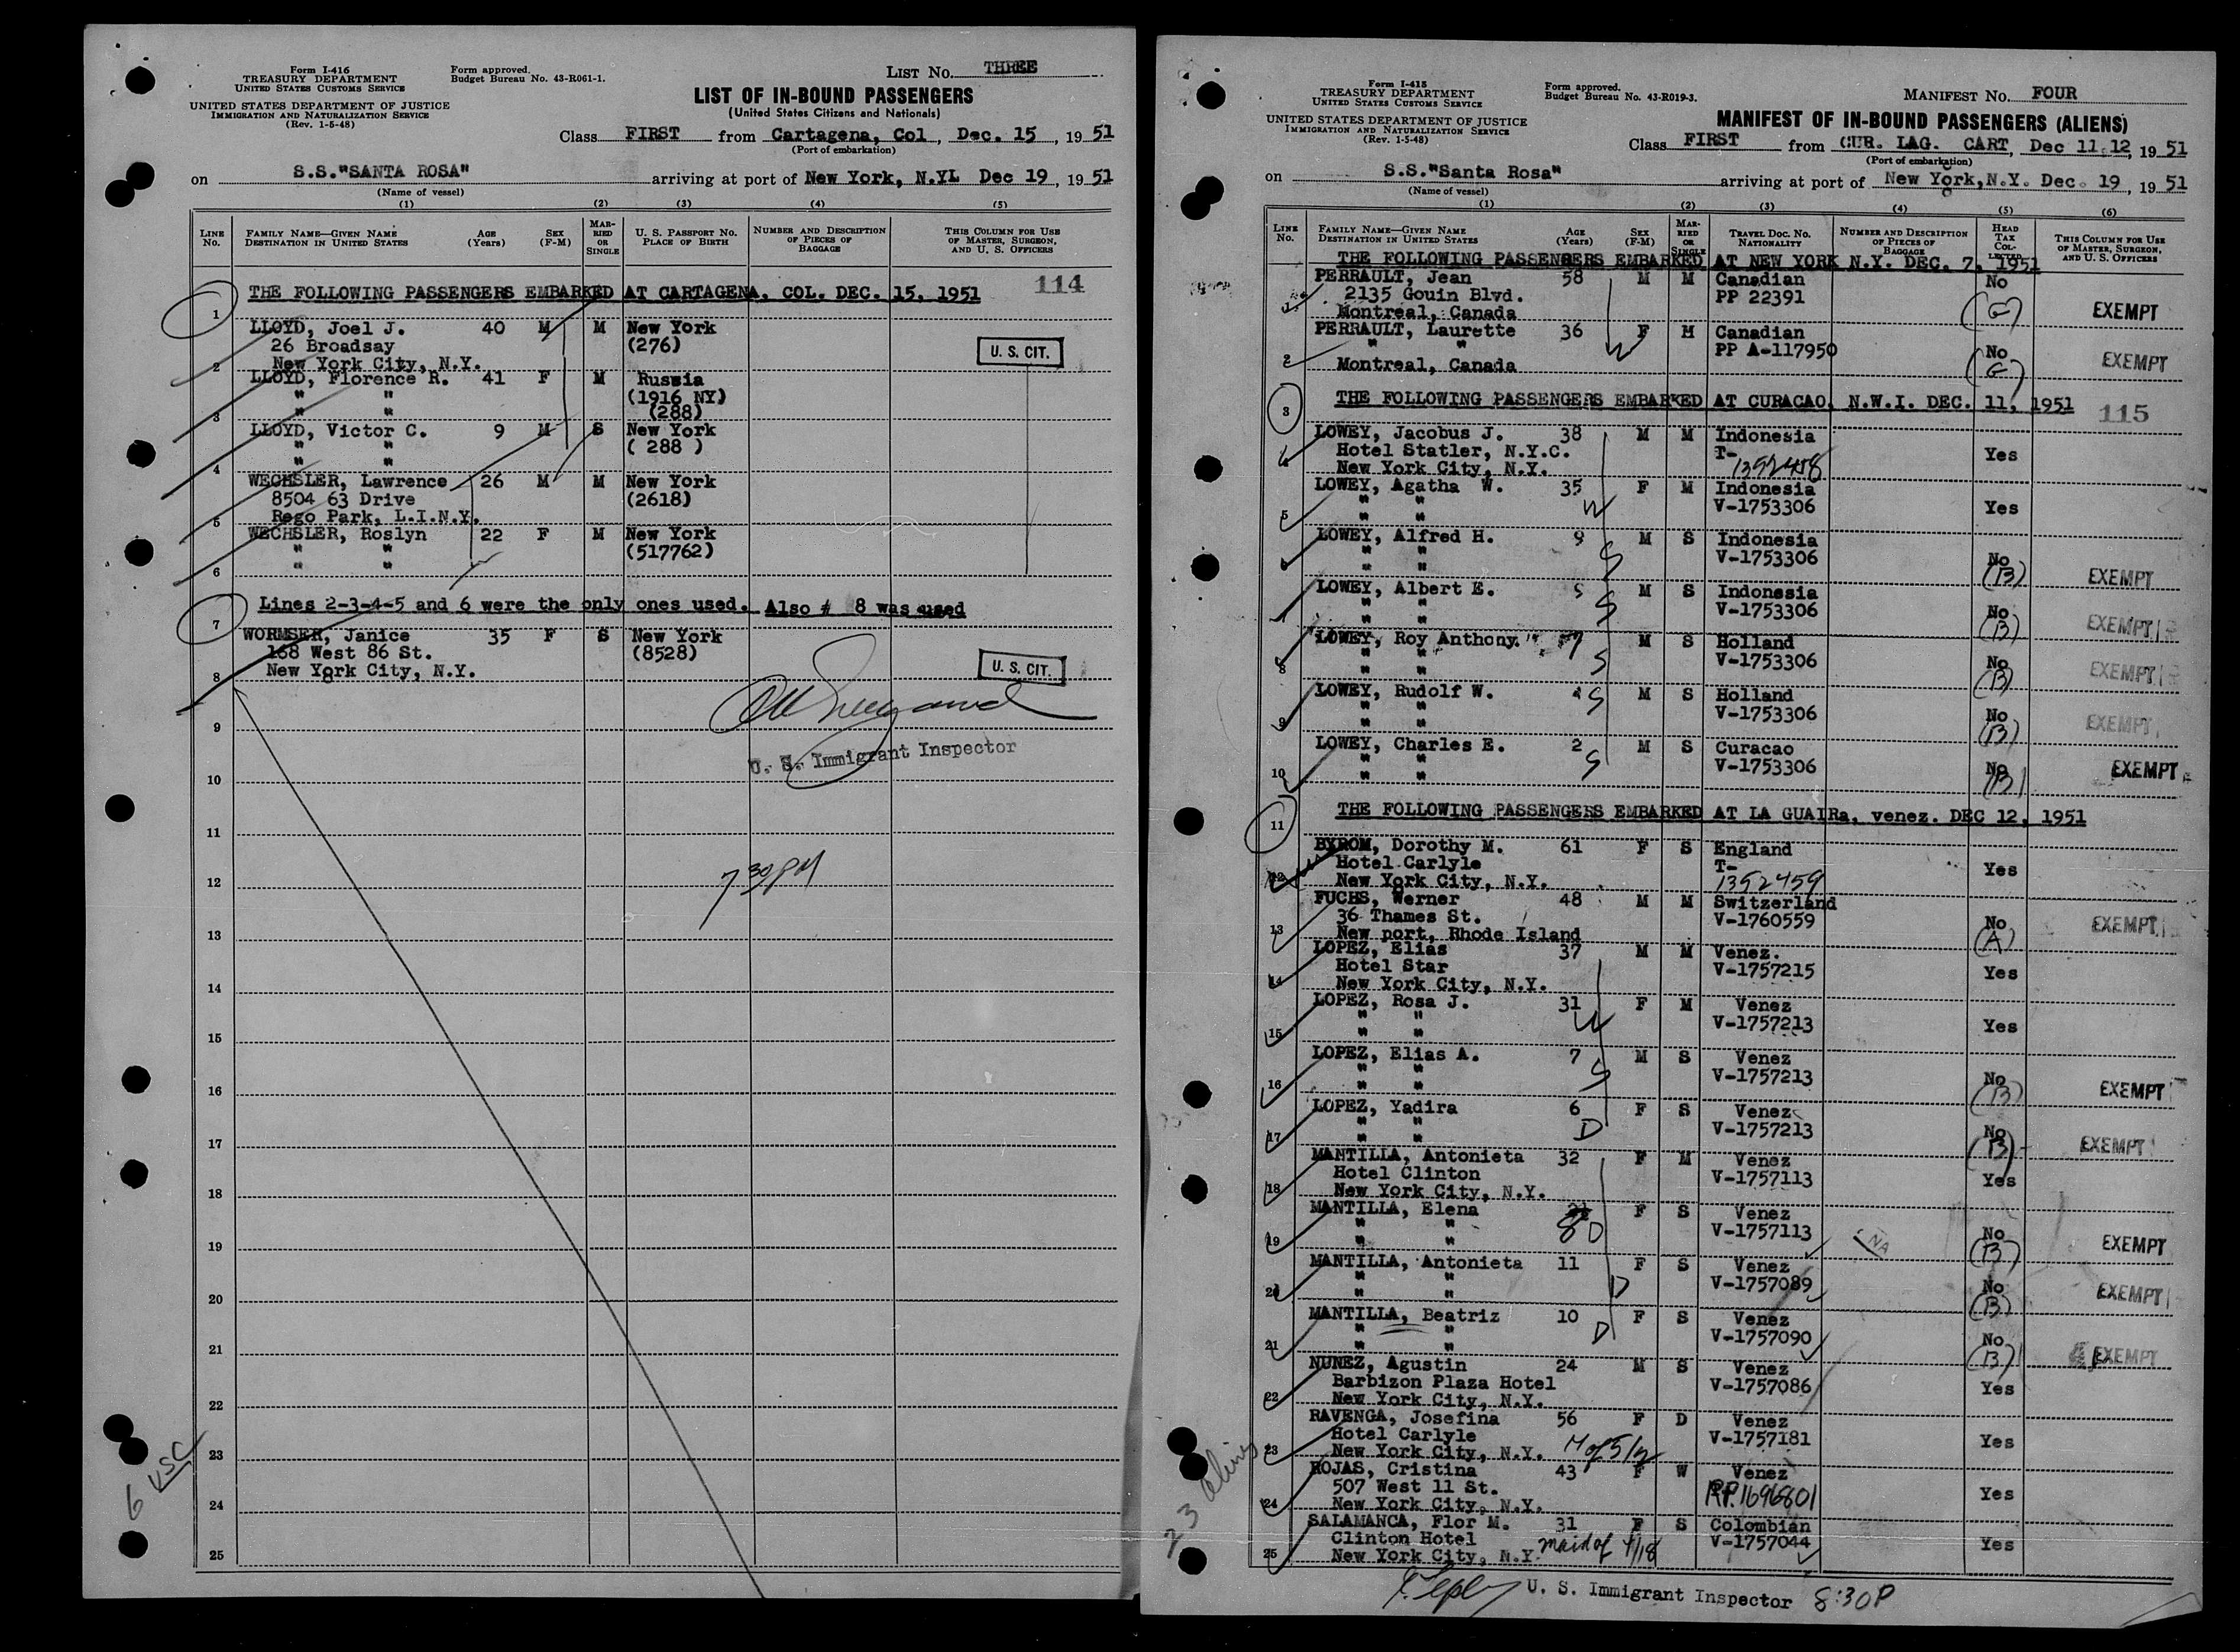 Form I-416
TREASURY DEPARTMENT
UNITED STATES CUSTOMS SERVICE
UNITED STATES DEPARTMENT OF JUSTICE
IMMIGRATION AND NATURALIZATION SERVICE
(Rev. 1-5-48)
Form approved.
Budget Bureau No. 43-R061-1.
LIST No. THREE
LIST OF IN-BOUND PASSENGERS
(United States Citizens and Nationals)
Class FIRST from Cartagena, Col, Dec. 15, 1951
(Port of embarkation)
on S.S."SANTA ROSA" arriving at port of New York, N.YL Dec 19, 1951
(Name of vessel)
(1) (2) (3) (4) (5)
LINE No.
FAMILY NAME—GIVEN NAME
DESTINATION IN UNITED STATES
AGE (Years)
SEX (F-M)
MARRIED OR SINGLE
U. S. PASSPORT No.
PLACE OF BIRTH
NUMBER AND DESCRIPTION OF PIECES OF BAGGAGE
THIS COLUMN FOR USE OF MASTER, SURGEON, AND U. S. OFFICERS
114
1 THE FOLLOWING PASSENGERS EMBARKED AT CARTAGENA, COL. DEC. 15, 1951
LLOYD, Joel J. 40 M M New York
26 Broadsay (276)
U. S. CIT.
2 New York City, N.Y.
LLOYD, Florence R. 41 F M Russia
" " (1916 NY)
3 " " (288)
LLOYD, Victor C. 9 M S New York
" " ( 288 )
4 " "
WECHSLER, Lawrence 26 M M New York
8504 63 Drive (2618)
5 Rego Park, L.I.N.Y.
WECHSLER, Roslyn 22 F M New York
" " (517762)
6 " "
7 Lines 2-3-4-5 and 6 were the only ones used. Also # 8 was used
WORMSER, Janice 35 F S New York
168 West 86 St. (8528)
U. S. CIT.
8 New York City, N.Y.
9
U. S. Immigrant Inspector
10
11
7 30 PM
12
13
14
15
16
17
18
19
20
21
22
23
24
25
6 USC
Form I-415
TREASURY DEPARTMENT
UNITED STATES CUSTOMS SERVICE
UNITED STATES DEPARTMENT OF JUSTICE
IMMIGRATION AND NATURALIZATION SERVICE
(Rev. 1-5-48)
Form approved.
Budget Bureau No. 43-R019-3.
MANIFEST No. FOUR
MANIFEST OF IN-BOUND PASSENGERS (ALIENS)
Class FIRST from CUR. LAG. CART, Dec 11,12, 1951
(Port of embarkation)
on S.S."Santa Rosa" arriving at port of New York,N.Y. Dec. 19, 1951
(Name of vessel)
(1) (2) (3) (4) (5) (6)
LINE No.
FAMILY NAME—GIVEN NAME
DESTINATION IN UNITED STATES
AGE (Years)
SEX (F-M)
MARRIED OR SINGLE
TRAVEL DOC. No.
NATIONALITY
NUMBER AND DESCRIPTION OF PIECES OF BAGGAGE
HEAD TAX COLLECTED
THIS COLUMN FOR USE OF MASTER, SURGEON, AND U. S. OFFICERS
THE FOLLOWING PASSENGERS EMBARKED AT NEW YORK N.Y. DEC. 7, 1951
PERRAULT, Jean 58 M M Canadian No
2135 Gouin Blvd. PP 22391 (G) EXEMPT
1 Montreal, Canada
PERRAULT, Laurette 36 F M Canadian
" " W PP A-117950 No EXEMPT
2 Montreal, Canada (G)
3 THE FOLLOWING PASSENGERS EMBARKED AT CURACAO, N.W.I. DEC. 11, 1951
115
LOWEY, Jacobus J. 38 M M Indonesia
Hotel Statler, N.Y.C. T- Yes
4 New York City, N.Y. 1352458
LOWEY, Agatha W. 35 F M Indonesia
" " W V-1753306 Yes
5 " "
LOWEY, Alfred H. 9 M S Indonesia
" " S V-1753306 No
6 " " (B) EXEMPT
LOWEY, Albert E. M S Indonesia
" " S V-1753306 No
7 " " (B) EXEMPT
LOWEY, Roy Anthony 7 M S Holland
" " S V-1753306 No
8 " " (B) EXEMPT
LOWEY, Rudolf W. S M S Holland
" " V-1753306 No
9 " " (B) EXEMPT
LOWEY, Charles E. 2 M S Curacao
" " S V-1753306 No
10 " " (B) EXEMPT
11 THE FOLLOWING PASSENGERS EMBARKED AT LA GUAIRa, venez. DEC 12, 1951
BYROM, Dorothy M. 61 F S England
Hotel Carlyle T- Yes
12 New York City, N.Y. 1352459
FUCHS, Werner 48 M M Switzerland
36 Thames St. V-1760559 No EXEMPT
13 New port, Rhode Island (A)
LOPEZ, Elias 37 M M Venez.
Hotel Star V-1757215 Yes
14 New York City, N.Y.
LOPEZ, Rosa J. 31 F M Venez
" " W V-1757213 Yes
15 " "
LOPEZ, Elias A. 7 M S Venez
" " S V-1757213 No
16 " " (B) EXEMPT
LOPEZ, Yadira 6 F S Venez
" " D V-1757213 No
17 " " (B) EXEMPT
MANTILLA, Antonieta 32 F M Venez
Hotel Clinton V-1757113 Yes
18 New York City, N.Y.
MANTILLA, Elena F S Venez
" " 8 D V-1757113 NA No
19 " " (B) EXEMPT
MANTILLA, Antonieta 11 F S Venez
" " D V-1757089 No
20 " " (B) EXEMPT
MANTILLA, Beatriz 10 F S Venez
" " D V-1757090 No
21 " " (B) EXEMPT
NUNEZ, Agustin 24 M S Venez
Barbizon Plaza Hotel V-1757086 Yes
22 New York City, N.Y.
RAVENGA, Josefina 56 F D Venez
Hotel Carlyle V-1757181 Yes
23 New York City, N.Y. M of 5/12
ROJAS, Cristina 43 F W Venez
507 West 11 St. RP.1696801 Yes
24 New York City, N.Y.
SALAMANCA, Flor M. 31 F S Colombian
Clinton Hotel maid of 4/18 V-1757044 Yes
25 New York City, N.Y.
U. S. Immigrant Inspector 8:30P
23 aliens